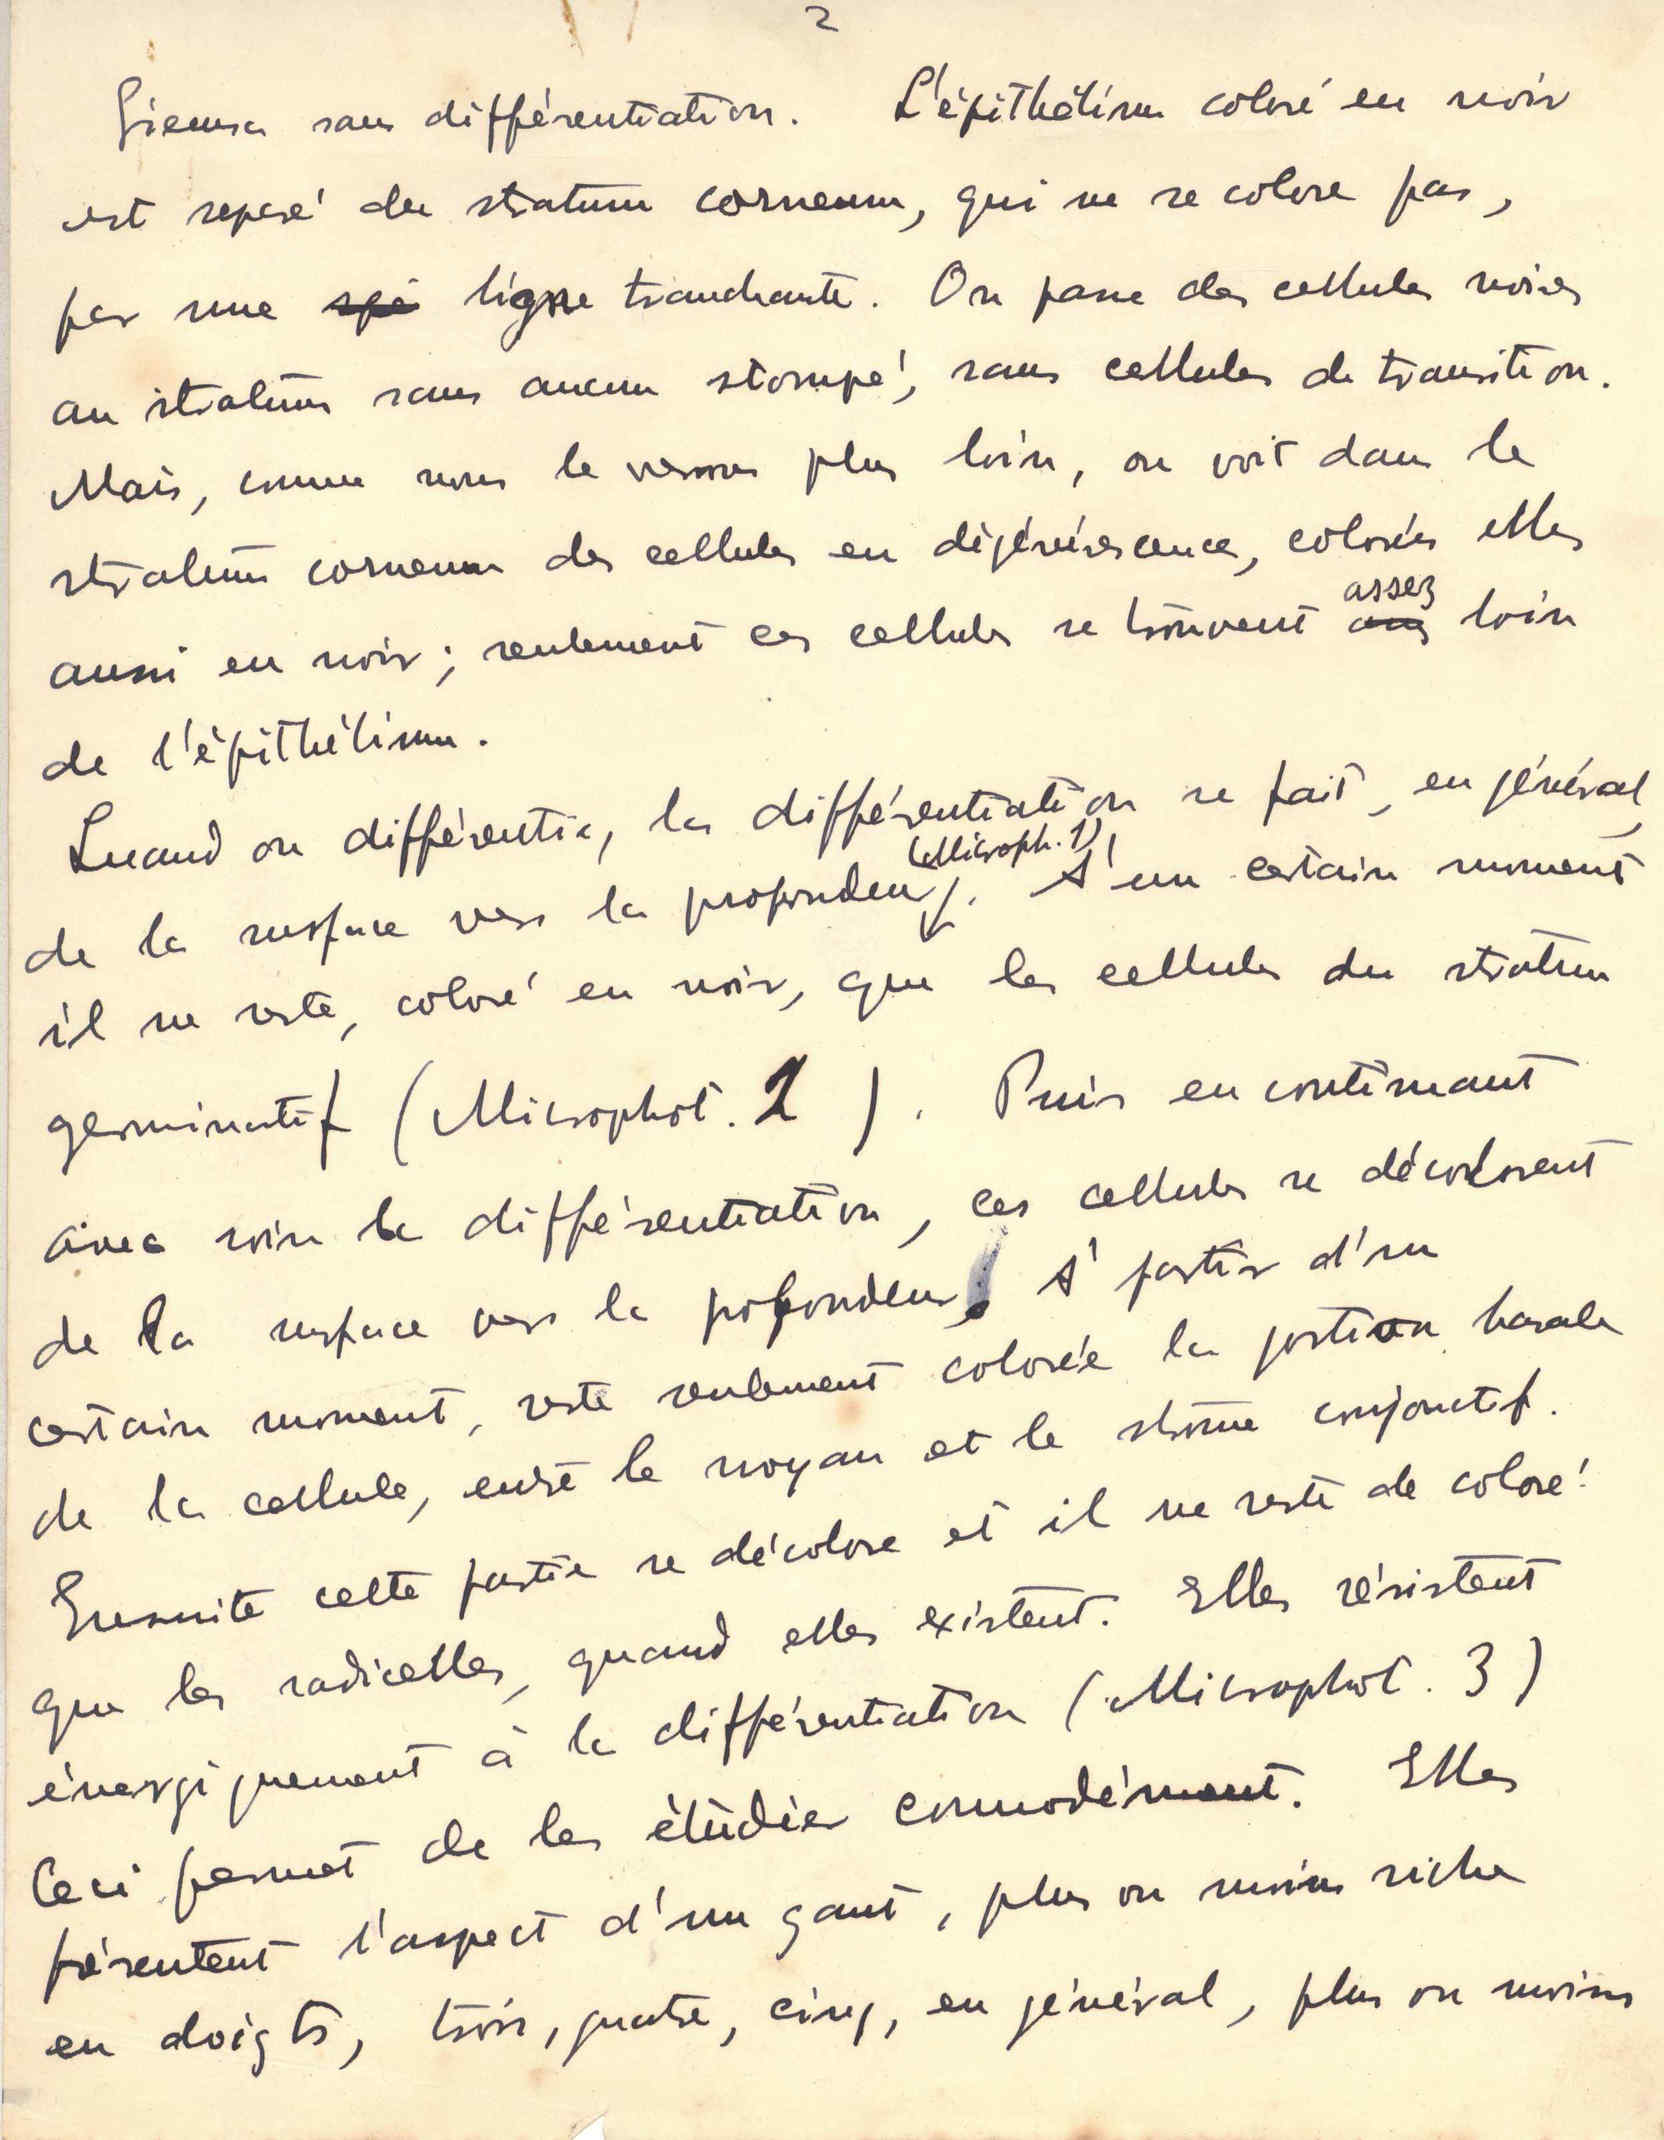 2
Giemsa sans différentiation. L'épithélium coloré en noir
est séparé du stratum corneum, qui ne se colore pas,
par une ligne tranchante. On passe des cellules noires
au stratum sans aucun stompé, sans cellules de transition.
Mais, comme nous le verrons plus loin, on voit dans le
stratum corneum des cellules en dégénérescence, colorées elles
aussi en noir ; seulement ces cellules se trouvent assez loin
de l'épithélium.
Quand on différentie, la différentiation se fait, en général,
de la surface vers la profondeur (Microph. 1). A' un certain moment
il ne reste, coloré en noir, que les cellules du stratum
germinatif (Microphot. 2 ). Puis en continuant
avec soin la différentiation, ces cellules se décolorent
de la surface vers la profondeur. A' partir d'un
certain moment, reste seulement colorée la portion basale
de la cellule, entre le noyau et le stroma conjonctif.
Ensuite cette partie se décolore et il ne reste de coloré
que les radicelles, quand elles existent. Elles résistent
énergiquement à la différentiation (Microphot. 3)
Ceci permet de les étudier commodément. Elles
présentent l'aspect d'un gant, plus ou moins riche
en doigts, trois, quatre, cinq, en général, plus ou moins